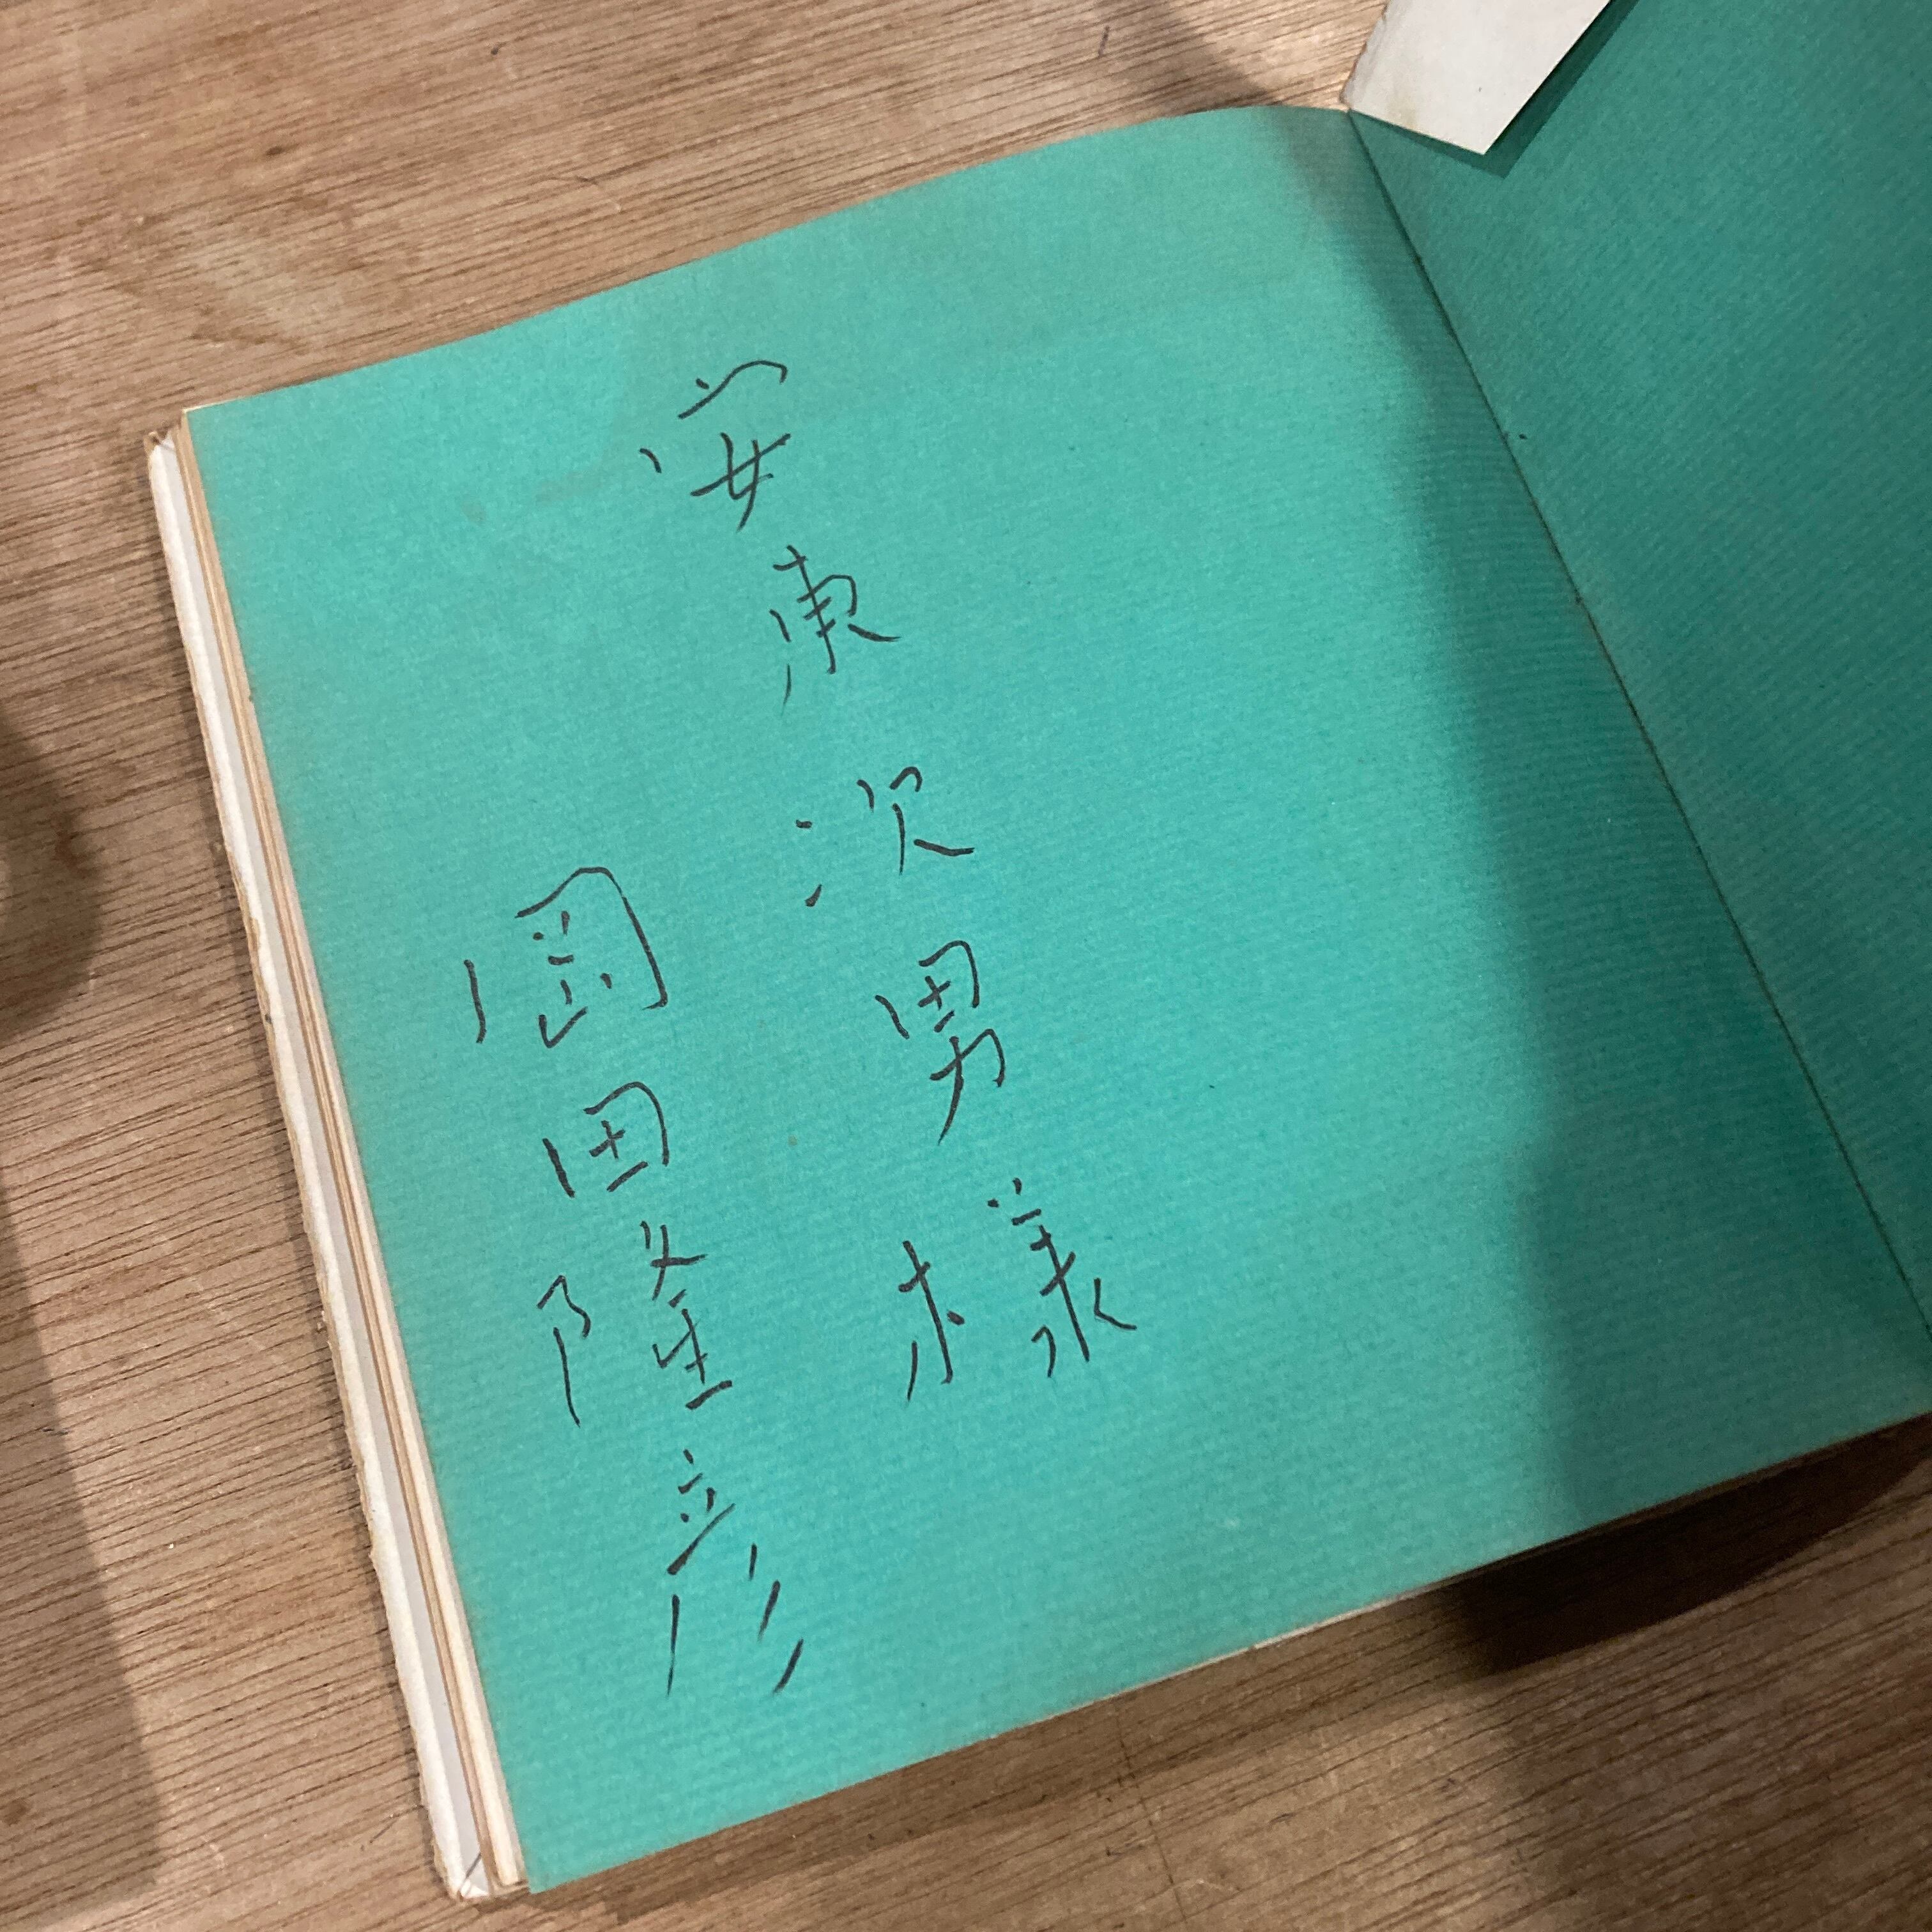 安東次男様
岡田隆彦